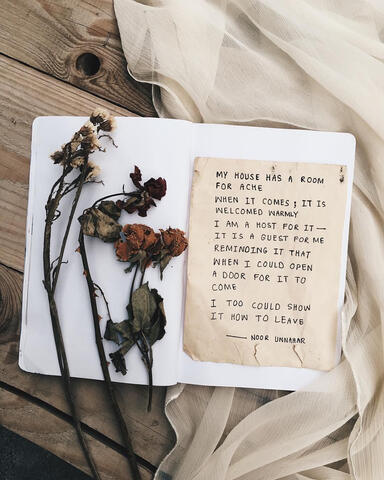 MY HOUSE HAS A ROOM
FOR ACHE
WHEN IT COMES; IT IS
WELCOMED WARMLY
I AM A HOST FOR IT—
IT IS A GUEST FOR ME
REMINDING IT THAT
WHEN I COULD OPEN
A DOOR FOR IT TO
COME
I TOO COULD SHOW
IT HOW TO LEAVE
—— NOOR UNNAHAR